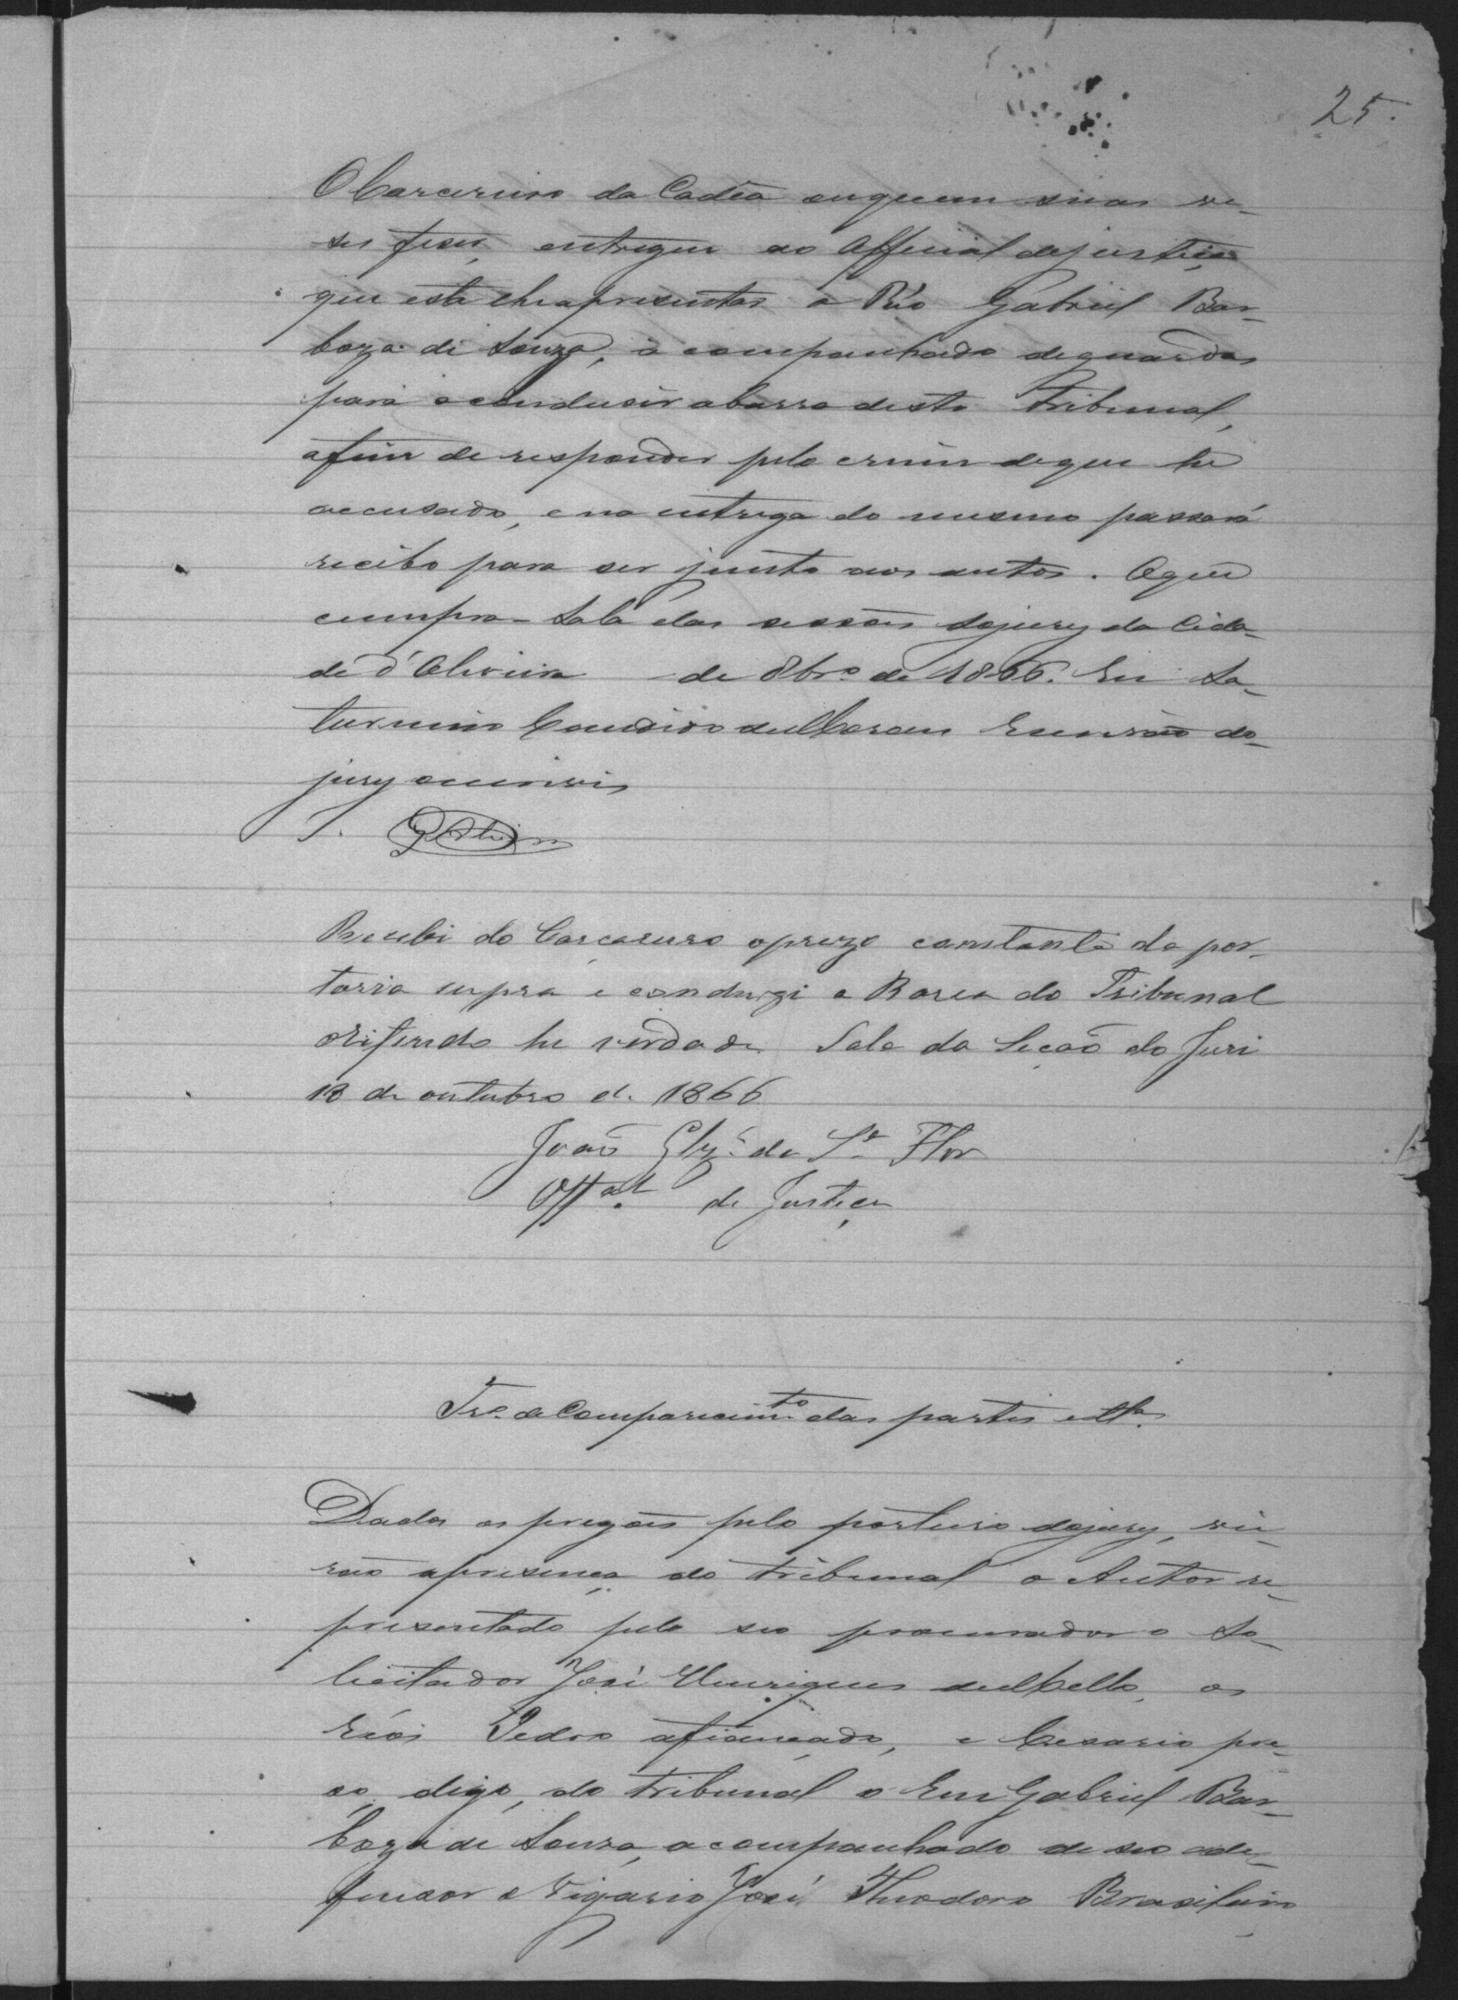 25.
O Carcereiro da Cadêa ouquem suas ve-
ses fiser, entregue ao Official dejustiça
que esta lhe apresentar o Réo Gabriel Bar-
boza de Souza, acompanhado deguardas
para oconduzir abarra deste Tribunal,
afim de responder pelo crime deque he
accusado, e na entrega do mesmo passará
recibo para ser junto aos autos. Oque
cumpra. Sala das sessões dojury da Cida-
de d'Oliveira de 8br.o de 1866. Eu Sa-
turnino Candido Escrivão do
jury oescrevi
Recebi do Carcareiro oprezo constante da por-
taria supra e conduzi a Barra do Tribunal
o referido he verdade Sala da Seção do Juri
18 de outubro d. 1866
João de S.ta Flor
Off.al de Justiça
Tr.o de Comparecim.to das partes e
Dados os pregões pelo porteiro dojury, vie-
rão apresença do tribunal o Autor re-
presentado pelo seo procurador o So-
licitador José Henriques de Mello, os
réos Pedro afiançado, e Cesario pre-
so, digo, do tribunal o Reu Gabriel Bar-
boza de Souza, acompanhado de seo de-
fensor o Vigario José Theodoro Brasileiro